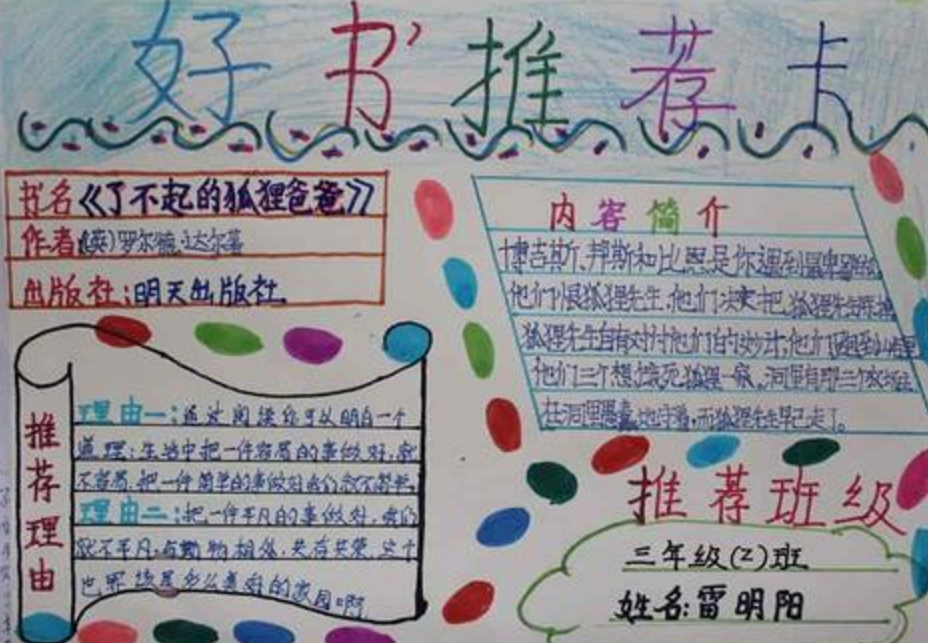 好书推荐卡
书名《了不起的狐狸爸爸》
作者(英)罗尔德·达尔著
出版社:明天出版社
内容简介
博吉斯、邦斯和比恩是你遇到最
他们恨狐狸先生,他们决定把狐狸先生
狐狸先生自有对付他们的妙计,他们
他们三个想饿死狐狸一家。洞里有
在洞里愚蠢地守着,而狐狸先生早已走了。
推荐理由
理由一:通过阅读你可以明白一个
道理:生活中把一件容易的事做好,就
不容易,把一件简单的事做好我们就不简单。
理由二:把一件平凡的事做好,我们
就不平凡。与动物相处,共存共荣,这个
世界该是多么美好的家园啊
推荐班级
三年级(2)班
姓名:雷明阳